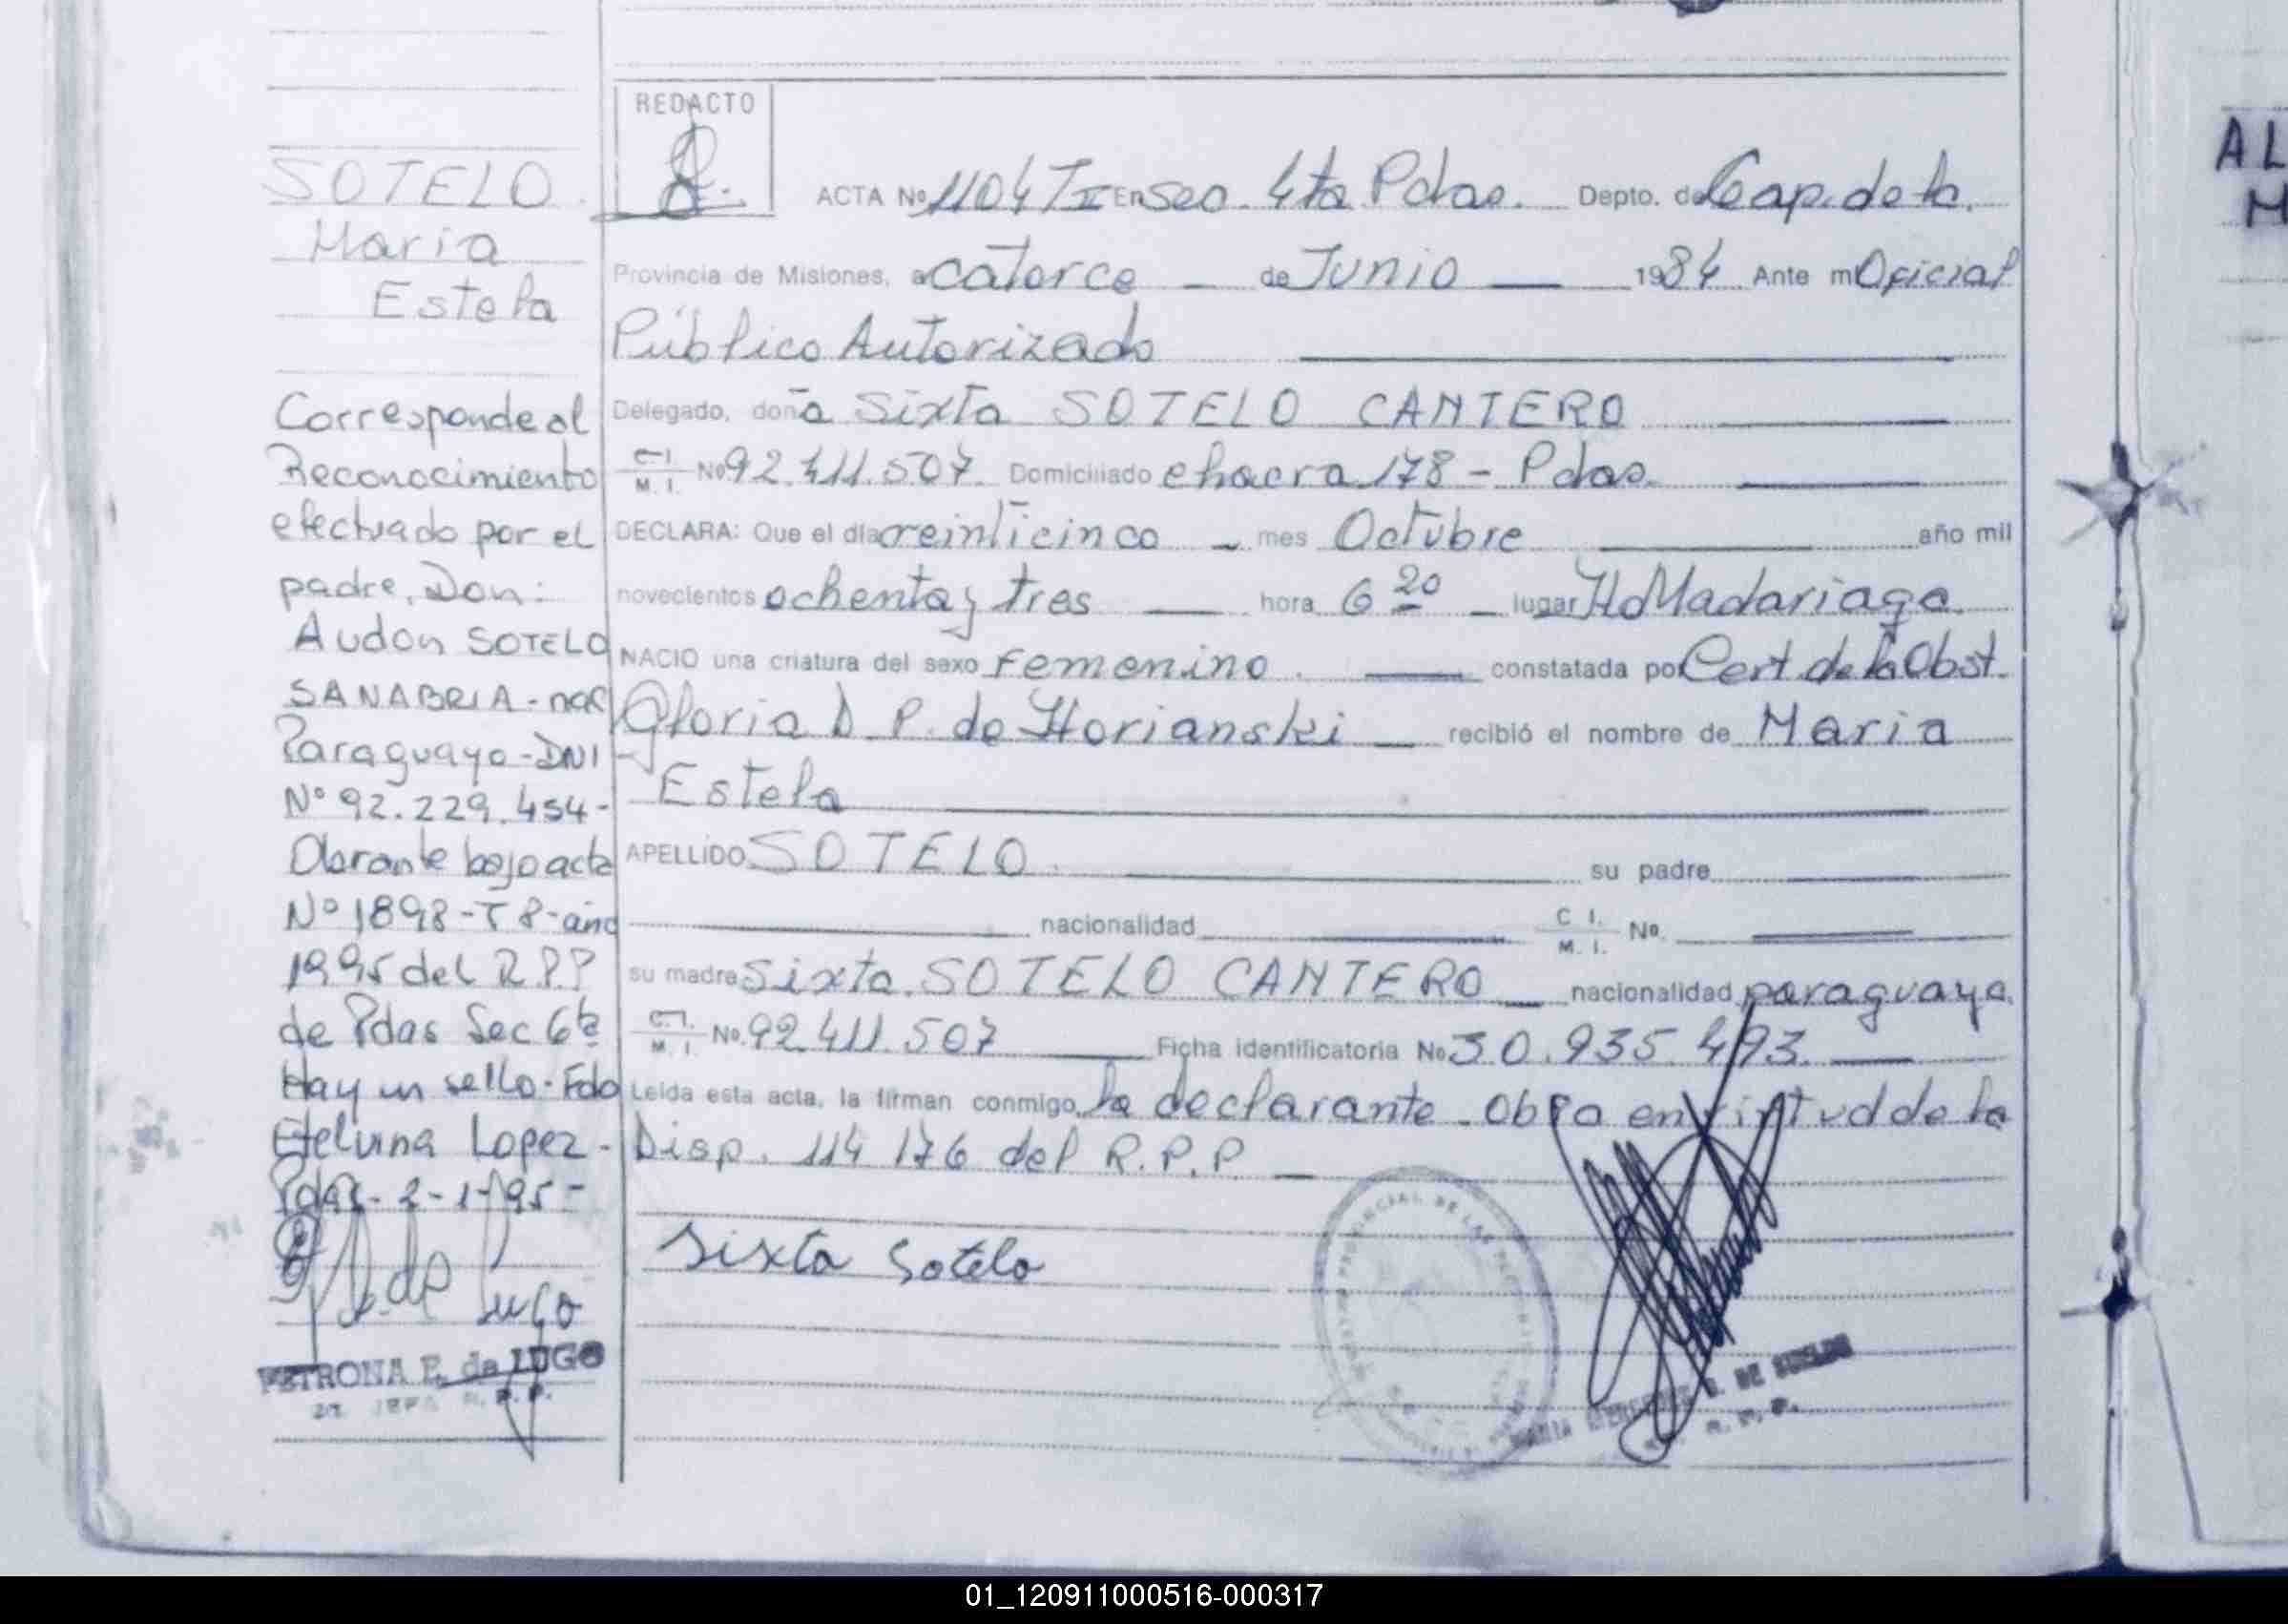 SOTELO
Maria
Estela
Corresponde al
Reconocimiento
efectuado por el
padre, Don:
Audon SOTELO
SANABRIA - nac
Paraguayo - DNI
N° 92.229.454 -
Obrante bajo acta
N° 1898 - T 8 - año
1995 del R.P.P
de Pdas Sec 6ta
Hay un sello - Fdo
Etelvina Lopez -
Pdas - 2-1-95 -
de Lugo
PETRONA E. de LUGO
JEFA R. P. P.
REDACTO
ACTA No 1104 T II En Sec. 4ta Pdas. Depto. de Cap. de la
Provincia de Misiones, a catorce de Junio 1984 Ante mi Oficial
Público Autorizado
Delegado, doña Sixta SOTELO CANTERO
C.I. M. I. No 92.411.507 Domiciliado chacra 178 - Pdas.
DECLARA: Que el día veinticinco mes Octubre año mil
novecientos ochenta y tres hora 6 20 lugar Ho Madariaga
NACIO una criatura del sexo Femenino constatada por Cert de la Obst.
Gloria D P. de Horianski recibió el nombre de Maria
Estela
APELLIDO SOTELO su padre
nacionalidad C I. M. I. No.
su madre Sixta SOTELO CANTERO nacionalidad paraguaya
C.I. M. I No. 92.411.507 Ficha identificatoria No 30.935.493.
Leída esta acta, la firman conmigo, la declarante. Obra en virtud de la
Disp. 114 176 del R.P.P
Sixta Sotelo
MARIA MERCEDES DE
R. P. P.
AL
M
01_120911000516-000317